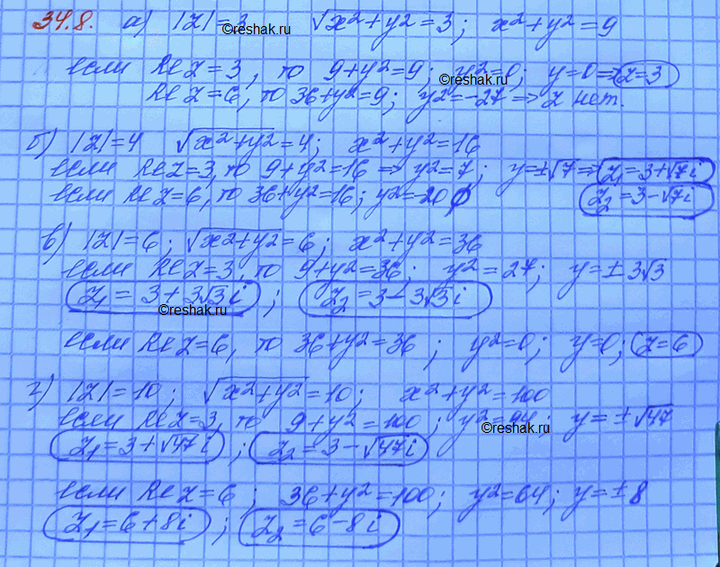 34.8. а) |z|=3 √x²+y²=3; x²+y²=9
если Re z=3, то 9+y²=9; y²=0; y=0⇒z=3
Re z=6, то 36+y²=9; y²=-27 ⇒ z нет.
б) |z|=4 √x²+y²=4; x²+y²=16
если Re z=3, то 9+y²=16 ⇒ y²=7; y=±√7⇒ z₁=3+√7i
если Re z=6, то 36+y²=16; y²=-20 ∅ z₂=3-√7i
в) |z|=6; √x²+y²=6; x²+y²=36
если Re z=3, то 9+y²=36; y²=27; y=±3√3
z₁=3+3√3i; z₂=3-3√3i
если Re z=6, то 36+y²=36; y²=0; y=0; z=6
г) |z|=10; √x²+y²=10; x²+y²=100
если Re z=3, то 9+y²=100; y²=94; y=±√47
z₁=3+√47i; z₂=3-√47i
если Re z=6; 36+y²=100; y²=64; y=±8
z₁=6+8i; z₂=6-8i
©reshak.ru
©reshak.ru
©reshak.ru
©reshak.ru